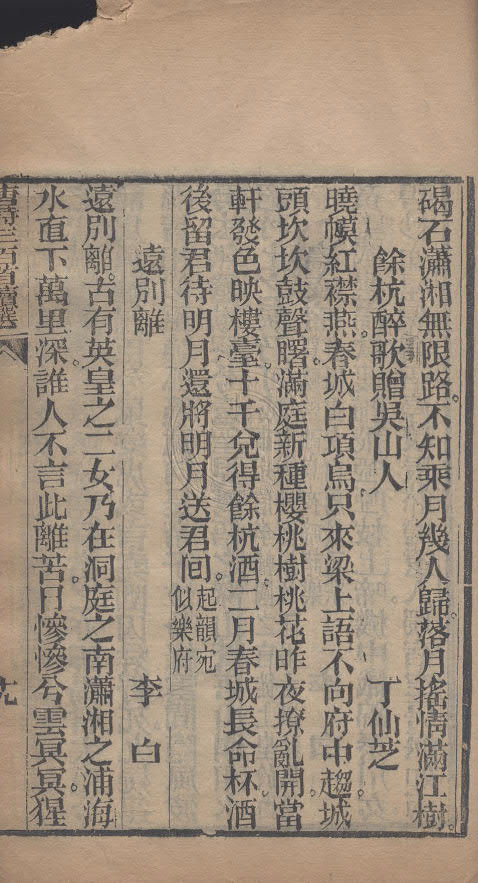 碣石瀟湘無限路。不知乘月幾人歸。落月搖情滿江樹。
餘杭醉歌贈吳山人 丁仙芝
曉幙紅襟燕。春城白項烏。只來梁上語。不向府中趨。城
頭坎坎鼓聲曙。滿庭新種櫻桃樹。桃花昨夜撩亂開。當
軒發色映樓臺。十千兌得餘杭酒。二月春城長命杯。酒
後留君待明月。還將明月送君回。起韻宛
似樂府
遠別離 李白
遠別離。古有英皇之二女。乃在洞庭之南。瀟湘之浦。海
水直下萬里深。誰人不言此離苦。日慘慘兮雲冥冥。猩
唐詩三百首續選